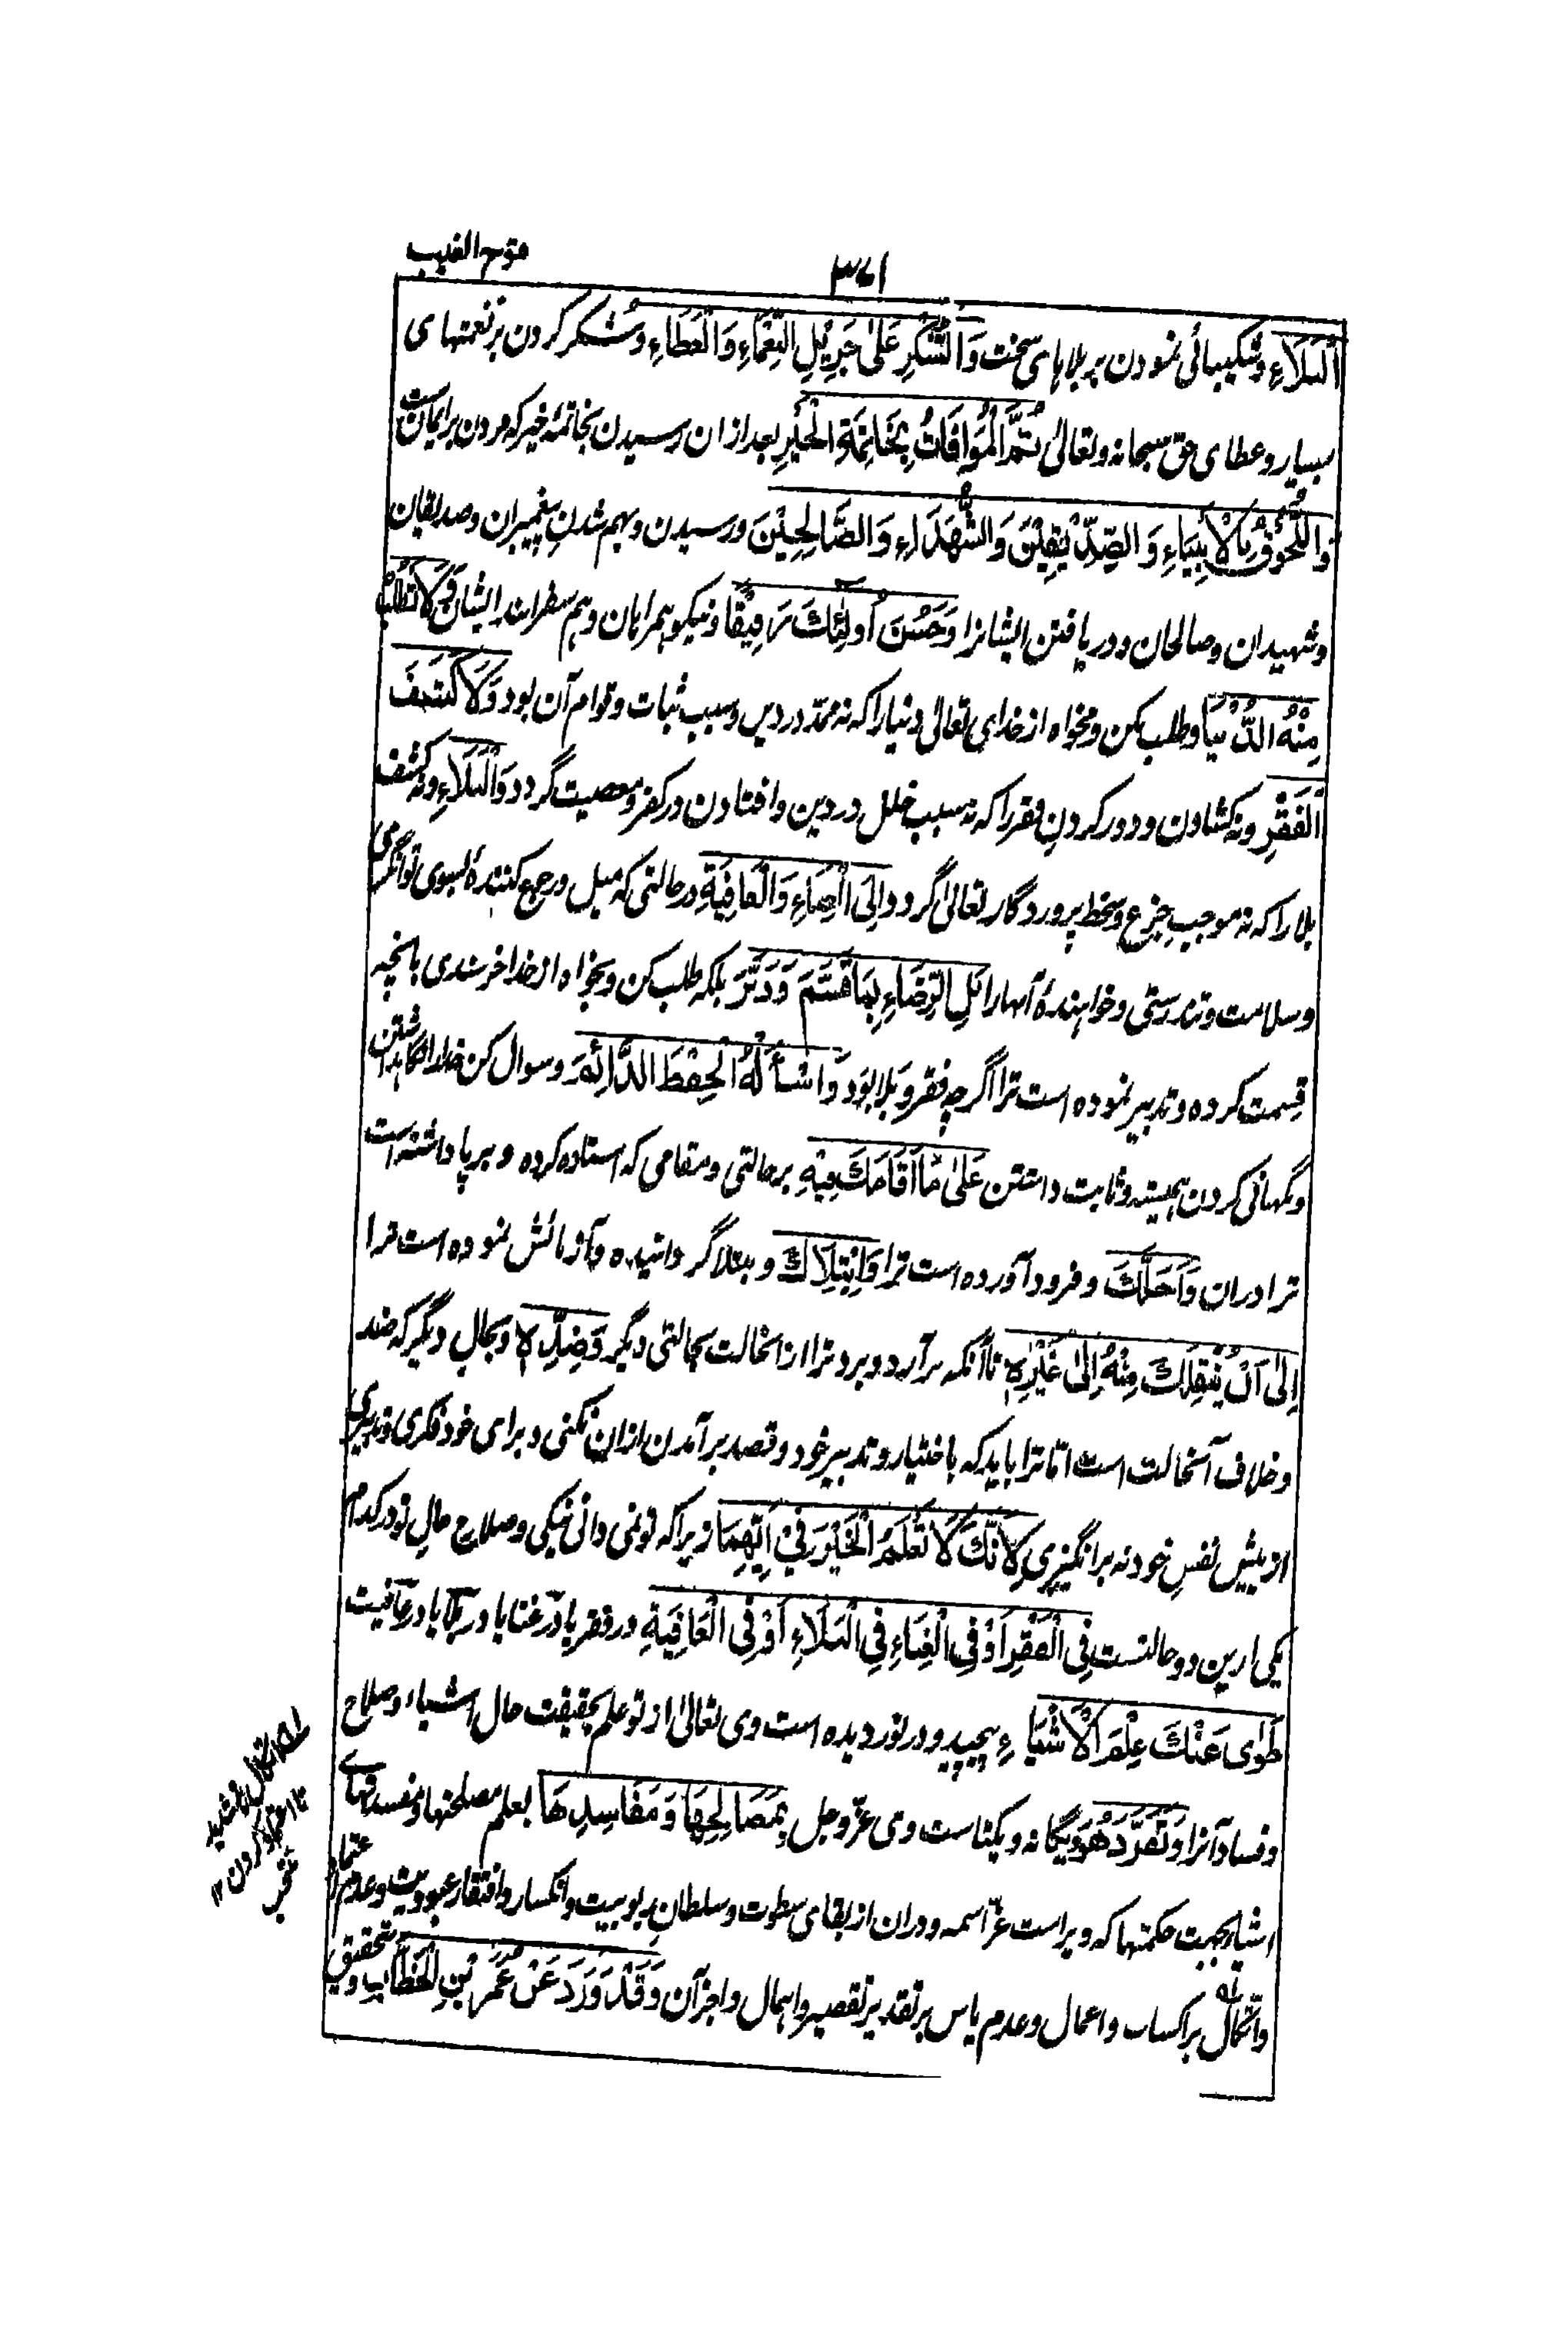 ۳۷۱
فتوح الغیب
اَلْبَلَاءِ وشکیبائی نمودن بر بلاہای سخت وَالشُّكْرِ عَلٰى جَزِيْلِ النِّعْمَاءِ وَالْعَطَاءِ وشکر کردن بر نعمتهای
بسیار وعطای حق سبحانه وتعالیٰ ثُمَّ الْمُوَافَاتُ بِخَاتِمَةِ الْخَيْرِ بعد ازان رسیدن بخاتمهٔ خیر که مردن بر ایمان است
وَاللُّحُوْقُ بِالْاَنْبِيَاءِ وَالصِّدِّيْقِيْنَ وَالشُّهَدَاءِ وَالصَّالِحِيْنَ ورسیدن وبهم شدنِ پیغمبران وصدیقان
وشهیدان وصالحان ودر یافتن ایشانرا وَحَسُنَ اُولٰئِكَ رَفِيْقًا ونیکو همراهان وهم سفرانند ایشان وَلَا تَطْلُبْ
مِنْهُ الدُّنْيَا وطلب مکن ومخواه از خدای تعالیٰ دنیا را که نه ممد در دین وسبب ثبات وقوام آن بود وَلَا كَشْفَ
الْفَقْرِ ونه کشادن ودور کردنِ فقر را که نه سبب خلل در دین وافتادن در کفر ومعصیت گردد وَالْبَلَاءِ ونه کشف
بلا را که نه موجبِ جزع وسخط پروردگار تعالیٰ گردد اِلَى الْغِنَاءِ وَالْعَافِيَةِ در حالتی که میل ورجوع کنندهٔ بسوی توانگری
وسلامت وتندرستی وخواہندهٔ آنہارا بَلِ الرِّضَاءِ بِمَا قَسَّمَ وَدَبَّرَ بلکه طلب کن وبخواه از خدا خرسندی بانچه
قسمت کرده وتدبیر نموده است ترا اگر چه فقر وبلا بود وَاسْأَلْهُ الْحِفْظَ الدَّائِمَ وسوال کن خدا را نگاہداشتن
ونگهبانی کردن ہمیشه وثابت داشتن عَلٰى مَا اَقَامَكَ فِيْهِ بر حالتی ومقامی که استاده کرده وبرپا داشته است
ترا دران وَاَحَلَّكَ وفرود آورده است ترا وَابْتَلَاكَ ومبتلا گردانیده وآزمائش نموده است ترا
اِلٰى اَنْ يَّنْقِلَكَ مِنْهُ اِلٰى غَيْرِهٖ تا آنکه برآرد وبرد ترا از انحالت بحالتی دیگر وَضِدِّهٖ وبحالِ دیگر که ضد
وخلاف آنحالت است اما ترا باید که باختیار وتدبیر خود وقصد برآمدن ازان نکنی وبرای خود فکری وتدبیری
از پیش نفسِ خود نه برانگیزی لِاَنَّكَ لَا تَعْلَمُ الْخَيْرَ فِيْ اَيِّهِمَا زیرا که تو نمی دانی نیکی وصلاح حالِ تو در کدام
یکی ازین دو حالتست فِى الْفَقْرِ اَوْ فِى الْغِنَاءِ فِى الْبَلَاءِ اَوْ فِى الْعَافِيَةِ در فقر یا در غنا یا در بلا یا در عافیت
طَوٰى عَنْكَ عِلْمَ الْاَشْيَاءِ پیچیده ودر نوردیده است وی تعالیٰ از تو علم بحقیقت حال اشیاء وصلاح
وفساد آنرا وَتَفَرَّدَ هُوَ ویگانه ویکتاست وی عزّوجل بِمَصَالِحِهَا وَمَفَاسِدِهَا بعلم مصلحتها ومفسدتهای
اشیا بجهت حکمتها که ویراست عزّ اسمه ودران از بقای سطوت وسلطانِ ربوبیت وانکسار وافتقار عبودیت وعدم اعتماد
واتکال بر اکساب واعمال وعدم یاس بر تقدیر تقصیر واہمال واجز آن وَقَدْ وَرَدَ عَنْ عُمَرَ بْنِ الْخَطَّابِ وبتحقیق